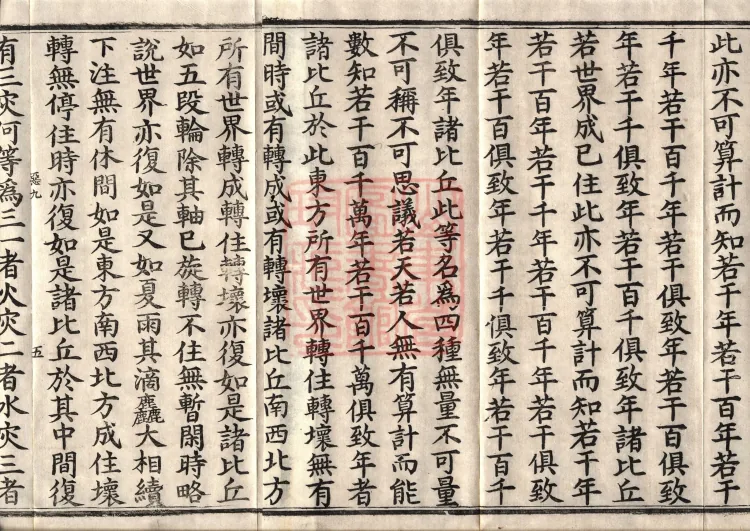 此亦不可算計而知若干年若干百年若干
千年若干百千年若干俱致年若干百俱致
年若干千俱致年若干百千俱致年諸比丘
若世界成已住此亦不可算計而知若干年
若干百年若干千年若干百千年若干俱致
年若干百俱致年若干千俱致年若干百千
俱致年諸比丘此等名為四種無量不可量
不可稱不可思議若天若人無有算計而能
數知若干百千萬年若干百千萬俱致年者
諸比丘於此東方所有世界轉住轉壞無有
間時或有轉成或有轉壞諸比丘南西北方
所有世界轉成轉住轉壞亦復如是諸比丘
如五段輪除其軸已旋轉不住無暫閑時略
說世界亦復如是又如夏雨其滴麤大相續
下注無有休間如是東方南西北方成住壞
轉無停住時亦復如是諸比丘於其中間復
惡九
五
有三灾何等為三一者火灾二者水灾三者